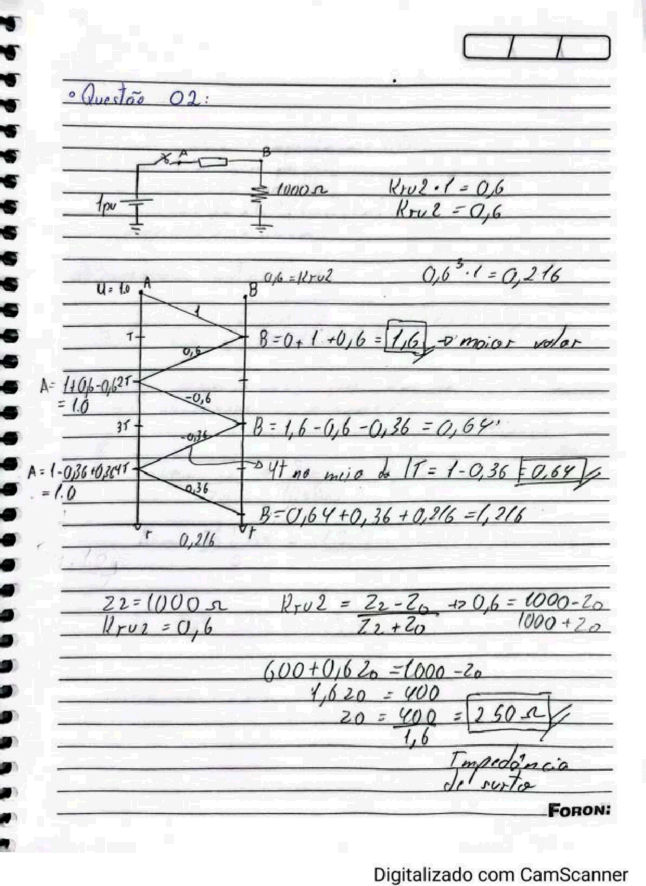 ° Questão 02:
A
B
1000Ω
1pu
Kru2 · 1 = 0,6
Kru2 = 0,6
U = 1.0 A
B 0,6 = Kru2
0,6³ · 1 = 0,216
1
T
B = 0 + 1 + 0,6 = 1,6 → maior valor
0,6
A = 1+0,6-0,6 2T
= 1.0
-0,6
3T
B = 1,6 - 0,6 - 0,36 = 0,64
-0,36
A = 1 - 0,36 + 0,36 4T
= 1.0
→ 4t no meio da LT = 1 - 0,36 = 0,64
0,36
B = 0,64 + 0,36 + 0,216 = 1,216
t
t
0,216
Z2 = 1000 Ω
Kru2 = 0,6
Kru2 = Z2 - Z0 / Z2 + Z0 → 0,6 = 1000 - Z0 / 1000 + Z0
600 + 0,6 Z0 = 1000 - Z0
1,6 Z0 = 400
Z0 = 400 / 1,6 = 250 Ω
Impedância
de surto
FORONI
Digitalizado com CamScanner